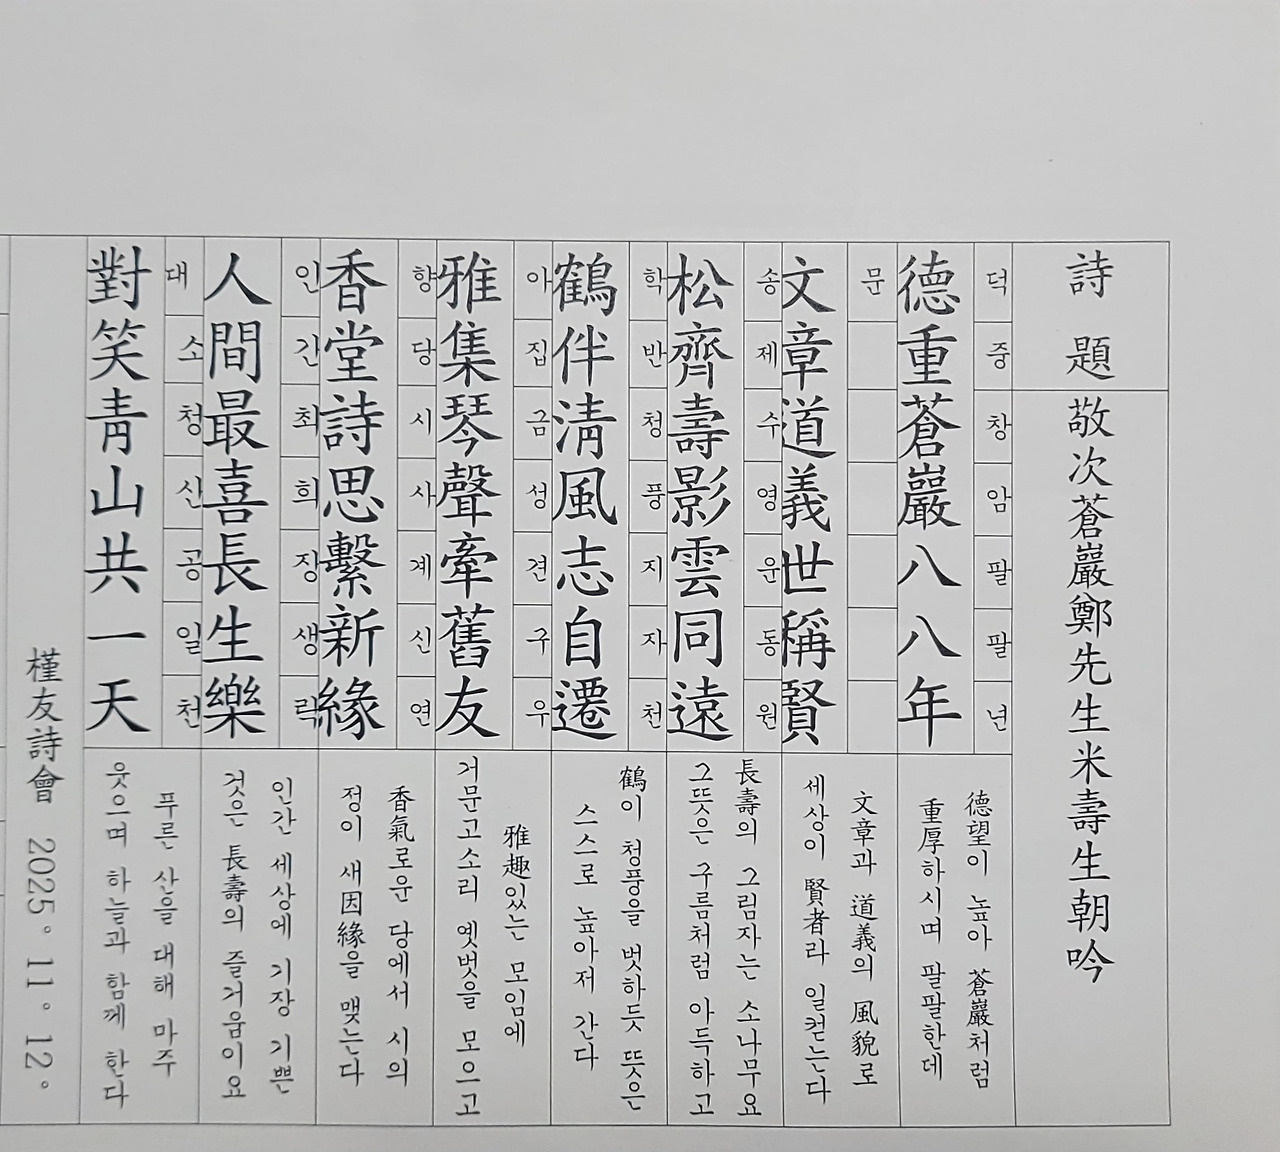 詩題
敬次蒼巖鄭先生米壽生朝吟
德重蒼巖八八年
덕중창암팔팔년
德望이 높아 蒼巖처럼
重厚하시며 팔팔한데
文章道義世稱賢
문
文章과 道義의 風貌로
세상이 賢者라 일컫는다
松齊壽影雲同遠
송제수영운동원
長壽의 그림자는 소나무요
그뜻은 구름처럼 아득하고
鶴伴淸風志自遷
학반청풍지자천
鶴이 청풍을 벗하듯 뜻은
스스로 높아저 간다
雅集琴聲牽舊友
아집금성견구우
雅趣있는 모임에
거문고소리 옛벗을 모으고
香堂詩思繫新緣
향당시사계신연
香氣로운 당에서 시의
정이 새因緣을 맺는다
人間最喜長生樂
인간최희장생락
인간 세상에 기장 기쁜
것은 長壽의 즐거움이요
對笑靑山共一天
대소청산공일천
푸른 산을 대해 마주
웃으며 하늘과 함께 한다
槿友詩會 2025。11。12。